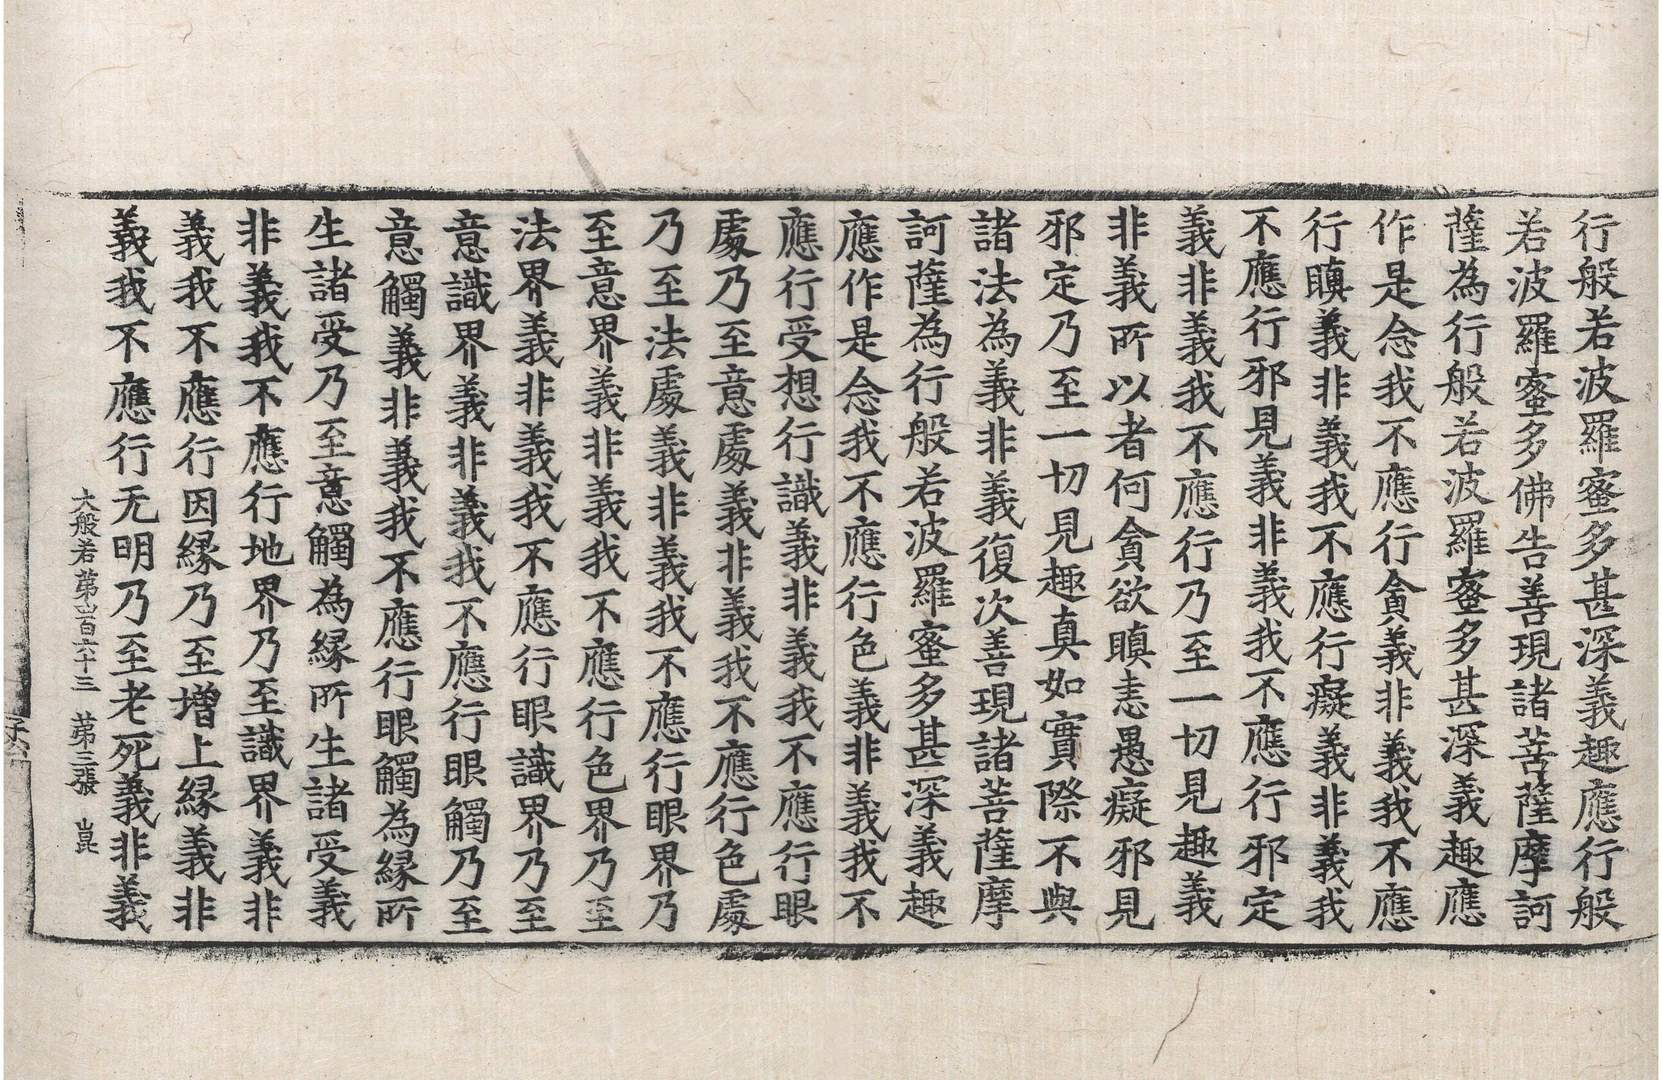 行般若波羅蜜多甚深義趣應行般
若波羅蜜多佛告善現諸菩薩摩訶
薩為行般若波羅蜜多甚深義趣應
作是念我不應行貪義非義我不應
行瞋義非義我不應行癡義非義我
不應行邪見義非義我不應行邪定
義非義我不應行乃至一切見趣義
非義所以者何貪欲瞋恚愚癡邪見
邪定乃至一切見趣真如實際不與
諸法為義非義復次善現諸菩薩摩
訶薩為行般若波羅蜜多甚深義趣
應作是念我不應行色義非義我不
應行受想行識義非義我不應行眼
處乃至意處義非義我不應行色處
乃至法處義非義我不應行眼界乃
至意界義非義我不應行色界乃至
法界義非義我不應行眼識界乃至
意識界義非義我不應行眼觸乃至
意觸義非義我不應行眼觸為緣所
生諸受乃至意觸為緣所生諸受義
非義我不應行地界乃至識界義非
義我不應行因緣乃至增上緣義非
義我不應行无明乃至老死義非義
大般若第四百六十三 第三張 崑